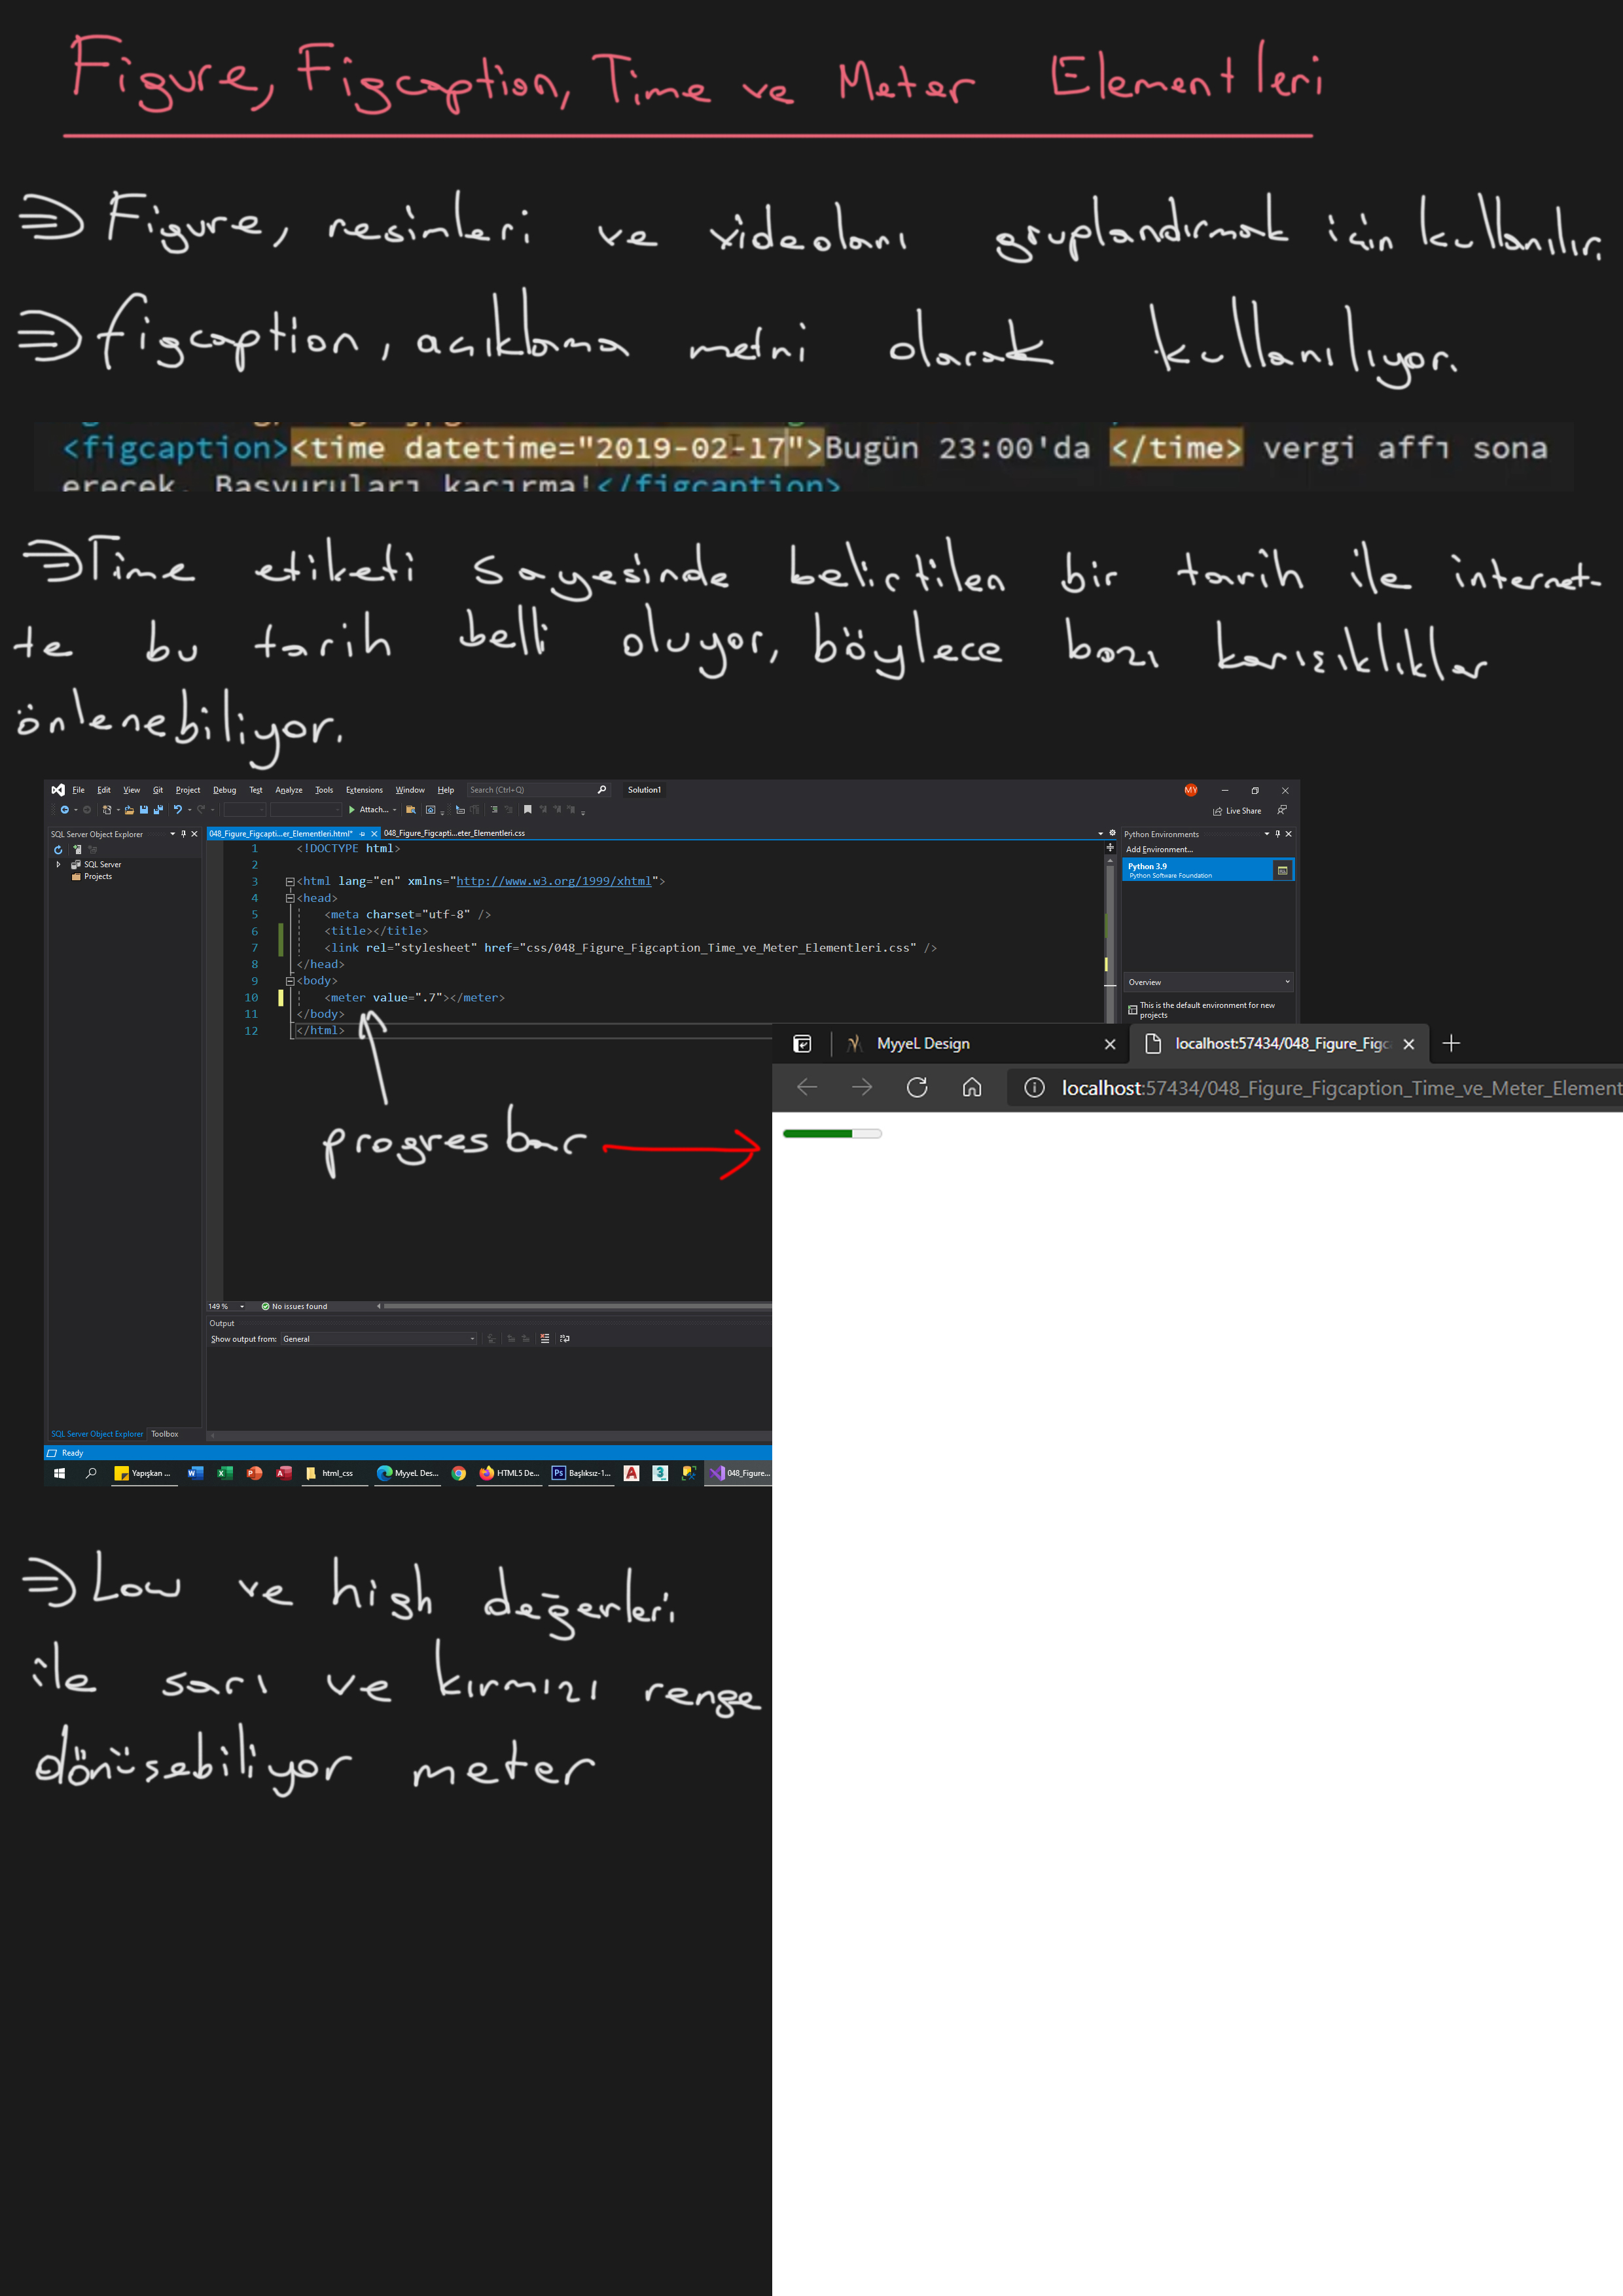 Figure, Figcaption, Time ve Meter Elementleri
⇒ Figure, resimleri ve videoları gruplandırmak için kullanılır.
⇒ figcaption, açıklama metni olarak kullanılıyor.
<figcaption><time datetime="2019-02-17">Bugün 23:00'da </time> vergi affı sona
erecek. Başvuruları kaçırma!</figcaption>
⇒ Time etiketi sayesinde belirtilen bir tarih ile internet-
te bu tarih belli oluyor, böylece bazı karışıklıklar
önlenebiliyor.
File Edit View Git Project Debug Test Analyze Tools Extensions Window Help Search (Ctrl+Q) Solution1 MY
Attach... Live Share
SQL Server Object Explorer 048_Figure_Figcapti...er_Elementleri.html* 048_Figure_Figcapti...eter_Elementleri.css Python Environments
1 <!DOCTYPE html> Add Environment...
2
SQL Server
Python 3.9
Projects
Python Software Foundation
3 <html lang="en" xmlns="http://www.w3.org/1999/xhtml">
4 <head>
5 <meta charset="utf-8" />
6 <title></title>
7 <link rel="stylesheet" href="css/048_Figure_Figcaption_Time_ve_Meter_Elementleri.css" />
8 </head>
9 <body>
Overview
10 <meter value=".7"></meter>
This is the default environment for new
projects
11 </body>
12 </html>
MyyeL Design localhost:57434/048_Figure_Figc
localhost:57434/048_Figure_Figcaption_Time_ve_Meter_Element
progres bar
149 % No issues found
Output
Show output from: General
SQL Server Object Explorer Toolbox
Ready
Yapışkan ... html_css MyyeL Des... HTML5 De... Ps Başlıksız-1... 048_Figure...
⇒ Low ve high değerleri
ile sarı ve kırmızı renge
dönüşebiliyor meter